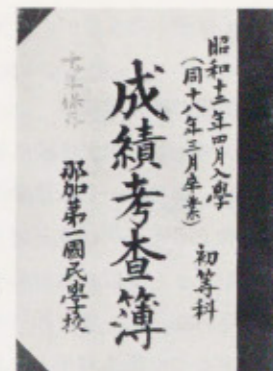 昭和十二年四月入學
（同十八年三月卒業）
初等科
成績考査簿
那加第一國民學校